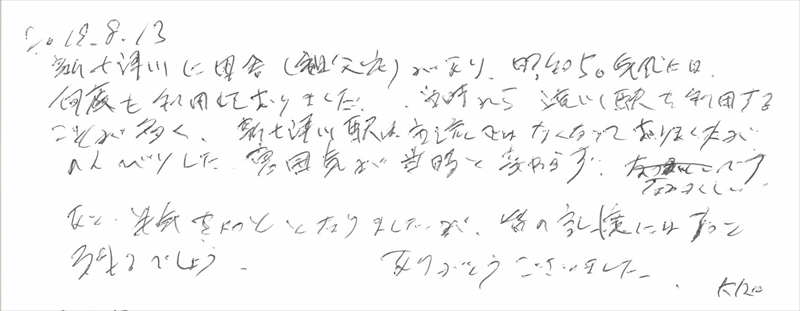 2018.8.13
新十津川に田舎(祖父宅)があり、昭和50年代は
何度も利用しておりました。当時から滝川駅を利用する
ことが多く、新十津川駅は主流ではなくなっておりましたが
のんびりした雰囲気が当時と変わらず、です
なつかしい
あと、半年とちょっととなりましたが、皆の記憶にはずっと
残るでしょう。 ありがとうございました。